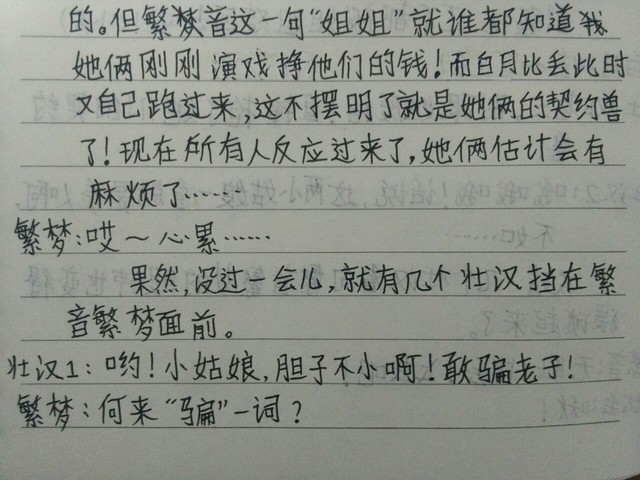 的。但繁音这一句“姐姐”就谁都知道
她俩刚刚演戏挣他们的钱！而白月比丢此时
又自己跑过来，这不摆明了就是她俩的契约兽
了！现在所有人反应过来了，她俩估计会有
麻烦了……
繁梦：哎～心累……
果然，没过一会儿，就有几个壮汉挡在繁
音繁梦面前。
壮汉1：哟！小姑娘，胆子不小啊！敢骗老子！
繁梦：何来“骗”一词？